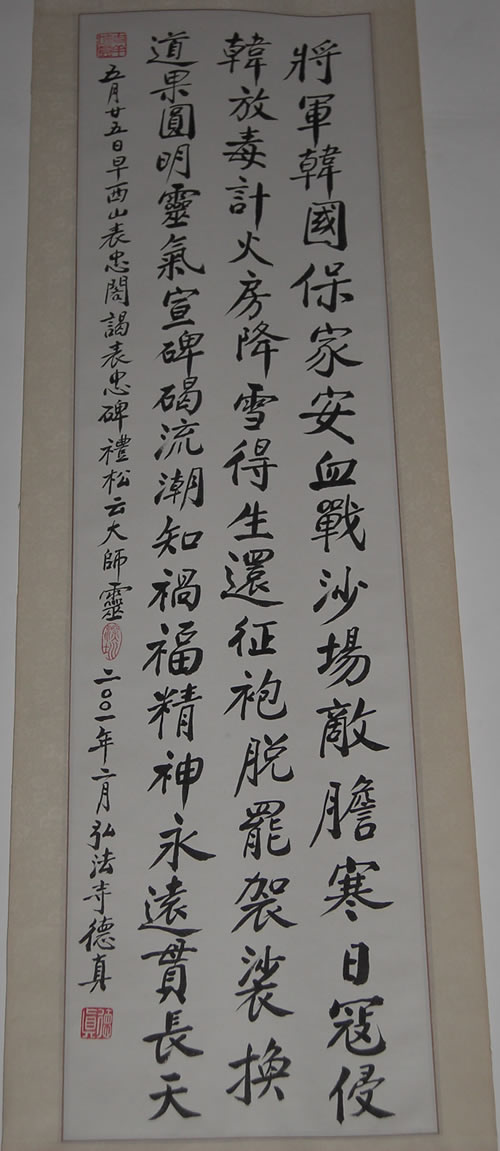 將軍韓國保家安血戰沙場敵膽寒日寇侵
韓放毒計火房降雪得生還征袍脱罷袈裟換
道果圓明靈氣宣碑碣流潮知禍福精神永遠貫長天
五月廿五日早西山表忠閣謁表忠碑禮松云大師靈
二〇〇一年二月弘法寺德真